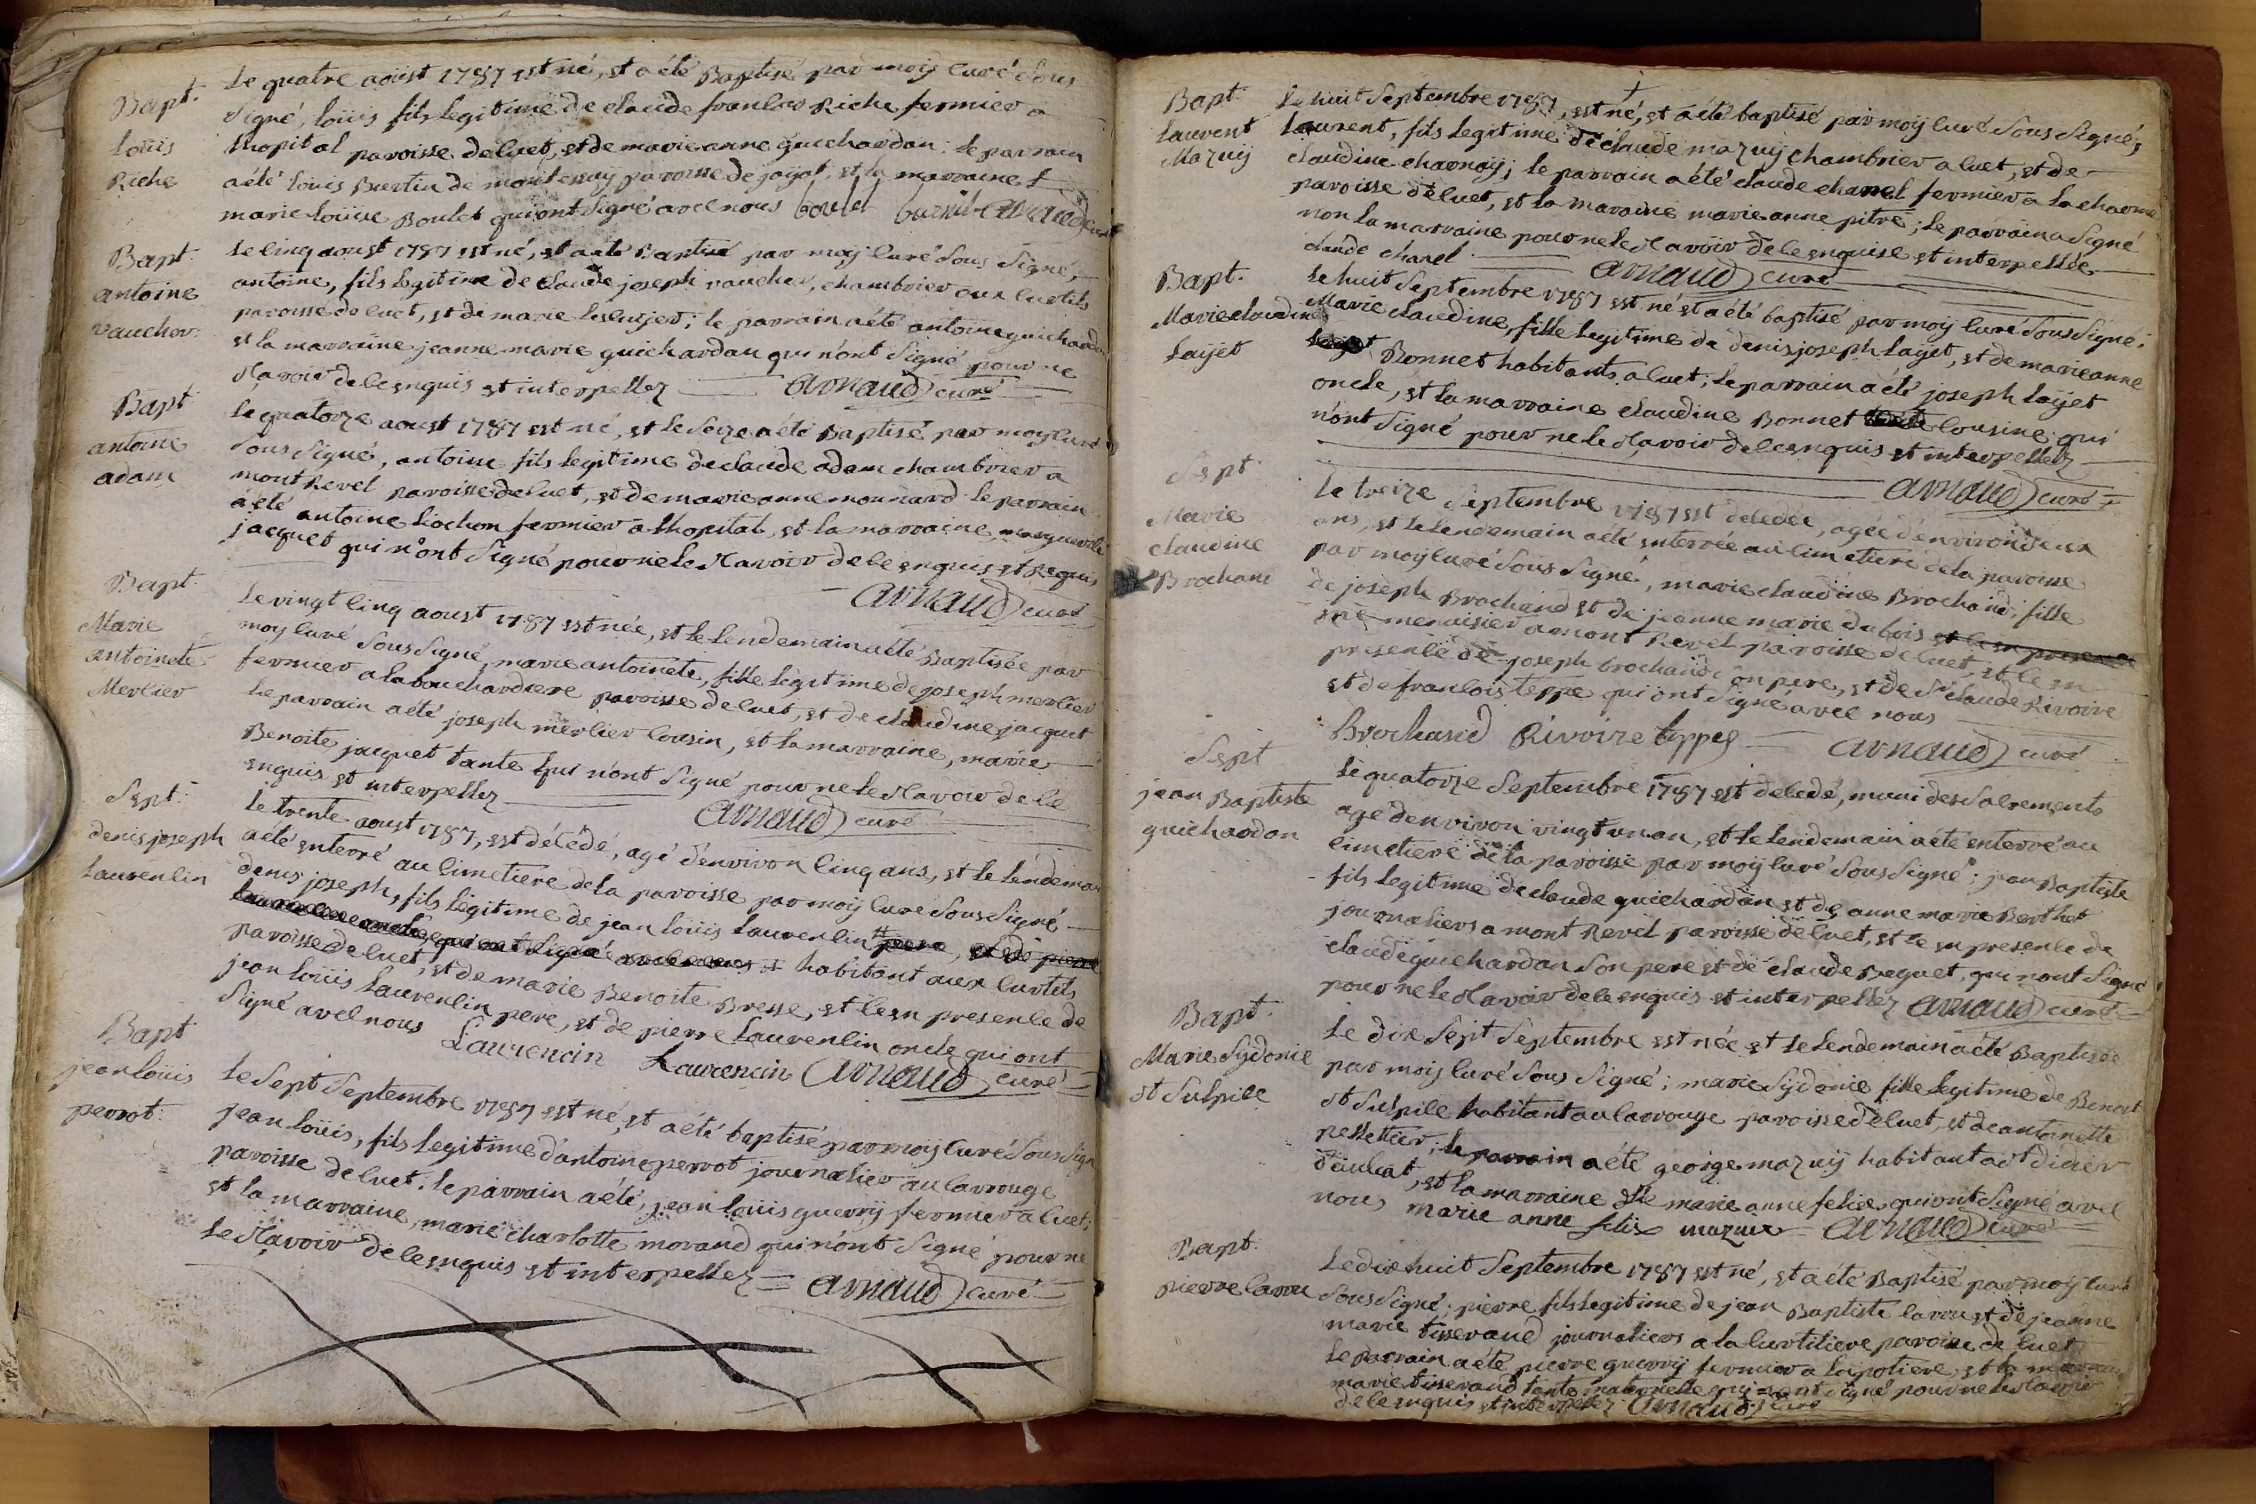 Bapt.
Loüis
Riche
Le quatre aoüst 1787 est né, et a été Baptisé par moÿ curé sous
signé, loüis fils legitime de claude francois Riche fermier a
lhopital paroisse de cuet, et de marie anne guichardan; le parrain
a été loüis Burtin de montessuy paroisse de jayat, et la marraine
marie loüise Boulet qui ont signé avec nous boulet burtin Arnaud curé
Bapt.
antoine
vaucher
Le cinq aoust 1787 est né, et a été Baptisé par moÿ curé sous signé,
antoine, fils legitime de claude joseph vaucher, chambrier aux curtils
paroisse de cuet, et de marie lescuyer; le parrain a été antoine guichardan
et la marraine jeanne marie guichardan qui n'ont signé pour ne
scavoir de ce enquis et interpellez Arnaud curé
Bapt
antoine
adam
Le quatorze aoust 1787 est né, et le seize a été Baptisé par moy curé
sous signé, antoine fils legitime de claude adam chambrier a
mont Revel paroisse de cuet, et de marie anne monnard le parrain
a été antoine Liochon fermier a lhopital, et la marraine marguerite
jacquet qui n'ont signé pour ne le scavoir de ce enquis et Requis
Arnaud curé
Bapt.
Marie
antoinete
Merlier
Le vingt cinq aoust 1787 est née, et le lendemain a été Baptisée par
moy curé sous signé, marie antoinete, fille legitime de joseph merlier
fermier a la bouchardiere paroisse de cuet, et de claudine jacquet
le parrain a été joseph merlier cousin, et la marraine, marie
Benoite jacquet tante qui n'ont signé pour ne le scavoir de ce
enquis et interpellez Arnaud curé
Sept.
denis joseph
Laurencin
Le trente aoust 1787, est décédé, agé d'environ cinq ans, et le lendemain
a été enterré au cimetiere de la paroisse par moÿ curé sous signé
denis joseph, fils legitime de jean loüis Laurencin pere, et de pierre
laurencin oncle, qui ont signé avec nous habitant aux curtils
paroisse de cuet, et de marie Benoite Bresse, et ce en presence de
jean loüis Laurencin pere, et de pierre Laurencin oncle qui ont
signé avec nous Laurencin Laurencin Arnaud curé
Bapt
jean loüis
perrot
Le sept septembre 1787 est né, et a été baptisé par moÿ curé sous signé
jean loüis, fils legitime d'antoine perrot journalier au carrouge
paroisse de cuet. le parrain a été, jean loüis guerrÿ fermier a cuet,
et la marraine, marie charlotte morand qui n'ont signé pour ne
le scavoir de ce enquis et interpellez Arnaud curé
Bapt
Laurent
Mazuÿ
Le huit septembre 1787, est né, et a été baptisé par moÿ curé sous signé,
Laurent, fils legitime de claude mazuÿ chambrier a cuet, et de
claudine charnaÿ; le parrain a été claude charel fermier a la charme
paroisse de cuet, et la maraine marie anne pitre; le parrain a signé
non la marraine pour ne le scavoir de ce enquise et interpellée
claude charel Arnaud curé
Bapt.
Marie claudine
Laÿet
Le huit septembre 1787 est né et a été baptisé par moÿ curé sous signé.
Marie claudine, fille legitime de denis joseph Layet, et de marie anne
Bonnet habitants a cuet; le parrain a été joseph Laÿet
oncle, et la marraine claudine Bonnet cousine qui
n'ont signé pour ne le scavoir de ce enquis et interpellez
Arnaud curé
Sept
Marie
claudine
Brochand
Le treize septembre 1787 est decedée, agée d'environ deux
ans, et le lendemain a été enterrée au cimetiere de la paroisse
par moÿ curé sous signé, marie claudine Brochand, fille
de joseph Brochand et de jeanne marie dubois et ce en presence
menuisier a mont Revel paroisse de cuet, et ce en
presence de joseph brochand son pere, et de Sr claude Rivoire
et de francois Teppe qui ont signé avec nous
Brochand Rivoire teppe Arnaud curé
Sept
jean Baptiste
guichardan
Le quatorze septembre 1787 est decedé, muni des sacrements
agé d'environ vingt un an, et le lendemain a été enterré au
cimetiere de la paroisse par moÿ curé sous signé; jean Baptiste
fils legitime de claude guichardan et de anne marie Berthet
journaliers a mont Revel paroisse de cuet, et ce en presence de
claude guichardan son pere et de claude peguet, qui n'ont signé
pour ne le scavoir de ce enquis et interpellez Arnaud curé
Bapt.
Marie Sÿdonie
St Sulpice
Le dix sept septembre est née et le lendemain a été Baptisée
par moÿ curé sous signé; marie Sÿdonie fille legitime de Benoit
St Sulpice habitant au carrouge paroisse de cuet, et de antoinette
pellettier; le parrain a été george mazuÿ habitant a St didier
d'aussiat, et la marraine dlle marie anne felix, qui ont signé avec
nous marie anne felix mazuir Arnaud curé
Bapt.
pierre Carru
Le dix huit septembre 1787 est né, et a été Baptisé par moÿ curé
sous signé; pierre fils legitime de jean Baptiste carru et de jeanne
marie tisserand journaliers a la curtiliere paroisse de cuet
le parrain a été pierre guerrÿ fermier a la potiere, et la marraine
marie tisserand tante maternelle qui n'ont signé pour ne le scavoir
de ce enquis et interpellez Arnaud curé